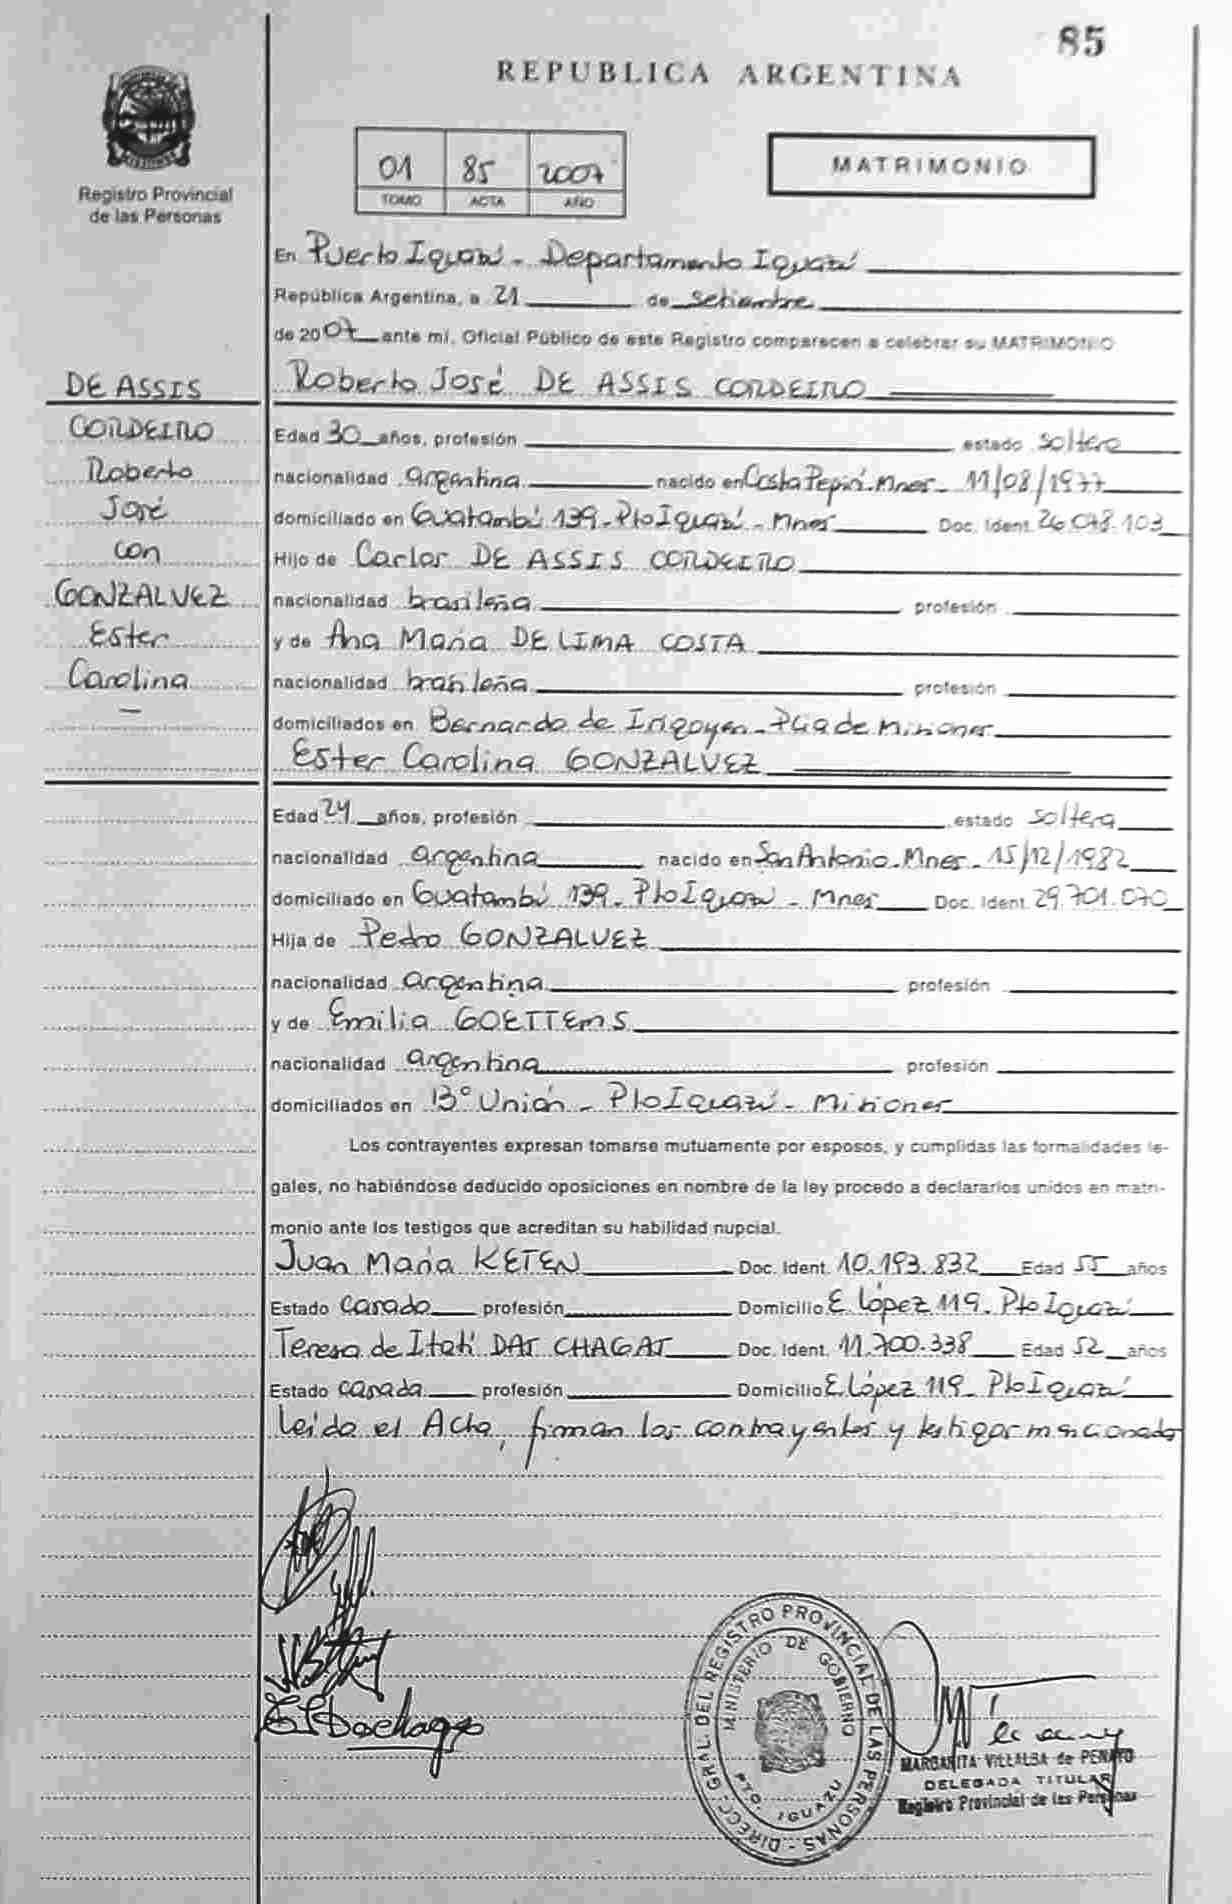 85
REPUBLICA ARGENTINA
Registro Provincial
de las Personas
01 85 2007
TOMO ACTA AÑO
MATRIMONIO
En Puerto Iguazú - Departamento Iguazú
República Argentina, a 21 de setiembre
de 2007 ante mí, Oficial Público de este Registro comparecen a celebrar su MATRIMONIO
DE ASSIS
CORDEIRO
Roberto
José
con
GONZALVEZ
Ester
Carolina
Roberto José DE ASSIS CORDEIRO
Edad 30 años, profesión estado soltero
nacionalidad argentina nacido en Costa Pepirí-Mnes- 11/08/1977
domiciliado en Guatambú 139-Pto Iguazú-Mnes Doc. Ident. 26.048.103
Hijo de Carlos DE ASSIS CORDEIRO
nacionalidad brasileña profesión
y de Ana María DE LIMA COSTA
nacionalidad brasileña profesión
domiciliados en Bernardo de Irigoyen-Pcia de Misiones
Ester Carolina GONZALVEZ
Edad 24 años, profesión estado soltera
nacionalidad argentina nacido en San Antonio-Mnes- 15/12/1982
domiciliado en Guatambú 139-Pto Iguazú-Mnes Doc. Ident. 29.701.070
Hija de Pedro GONZALVEZ
nacionalidad argentina profesión
y de Emilia GOETTEMS
nacionalidad argentina profesión
domiciliados en Bº Unión - Pto Iguazú - Misiones
Los contrayentes expresan tomarse mutuamente por esposos, y cumplidas las formalidades le-
gales, no habiéndose deducido oposiciones en nombre de la ley procedo a declararlos unidos en matri-
monio ante los testigos que acreditan su habilidad nupcial.
Juan María KETEN Doc. Ident. 10.193.832 Edad 55 años
Estado casado profesión Domicilio E. López 119-Pto Iguazú
Teresa de Itatí DAS CHAGAS Doc. Ident. 11.700.338 Edad 52 años
Estado casada profesión Domicilio E. López 119-Pto Iguazú
Leída el Acta, firman los contrayentes y testigos mencionados
DIRECC. GRAL. DEL REGISTRO PROVINCIAL DE LAS PERSONAS
MINISTERIO DE GOBIERNO
PTO. IGUAZU
MARGARITA VILLALBA de PENAYO
DELEGADA TITULAR
Registro Provincial de las Personas